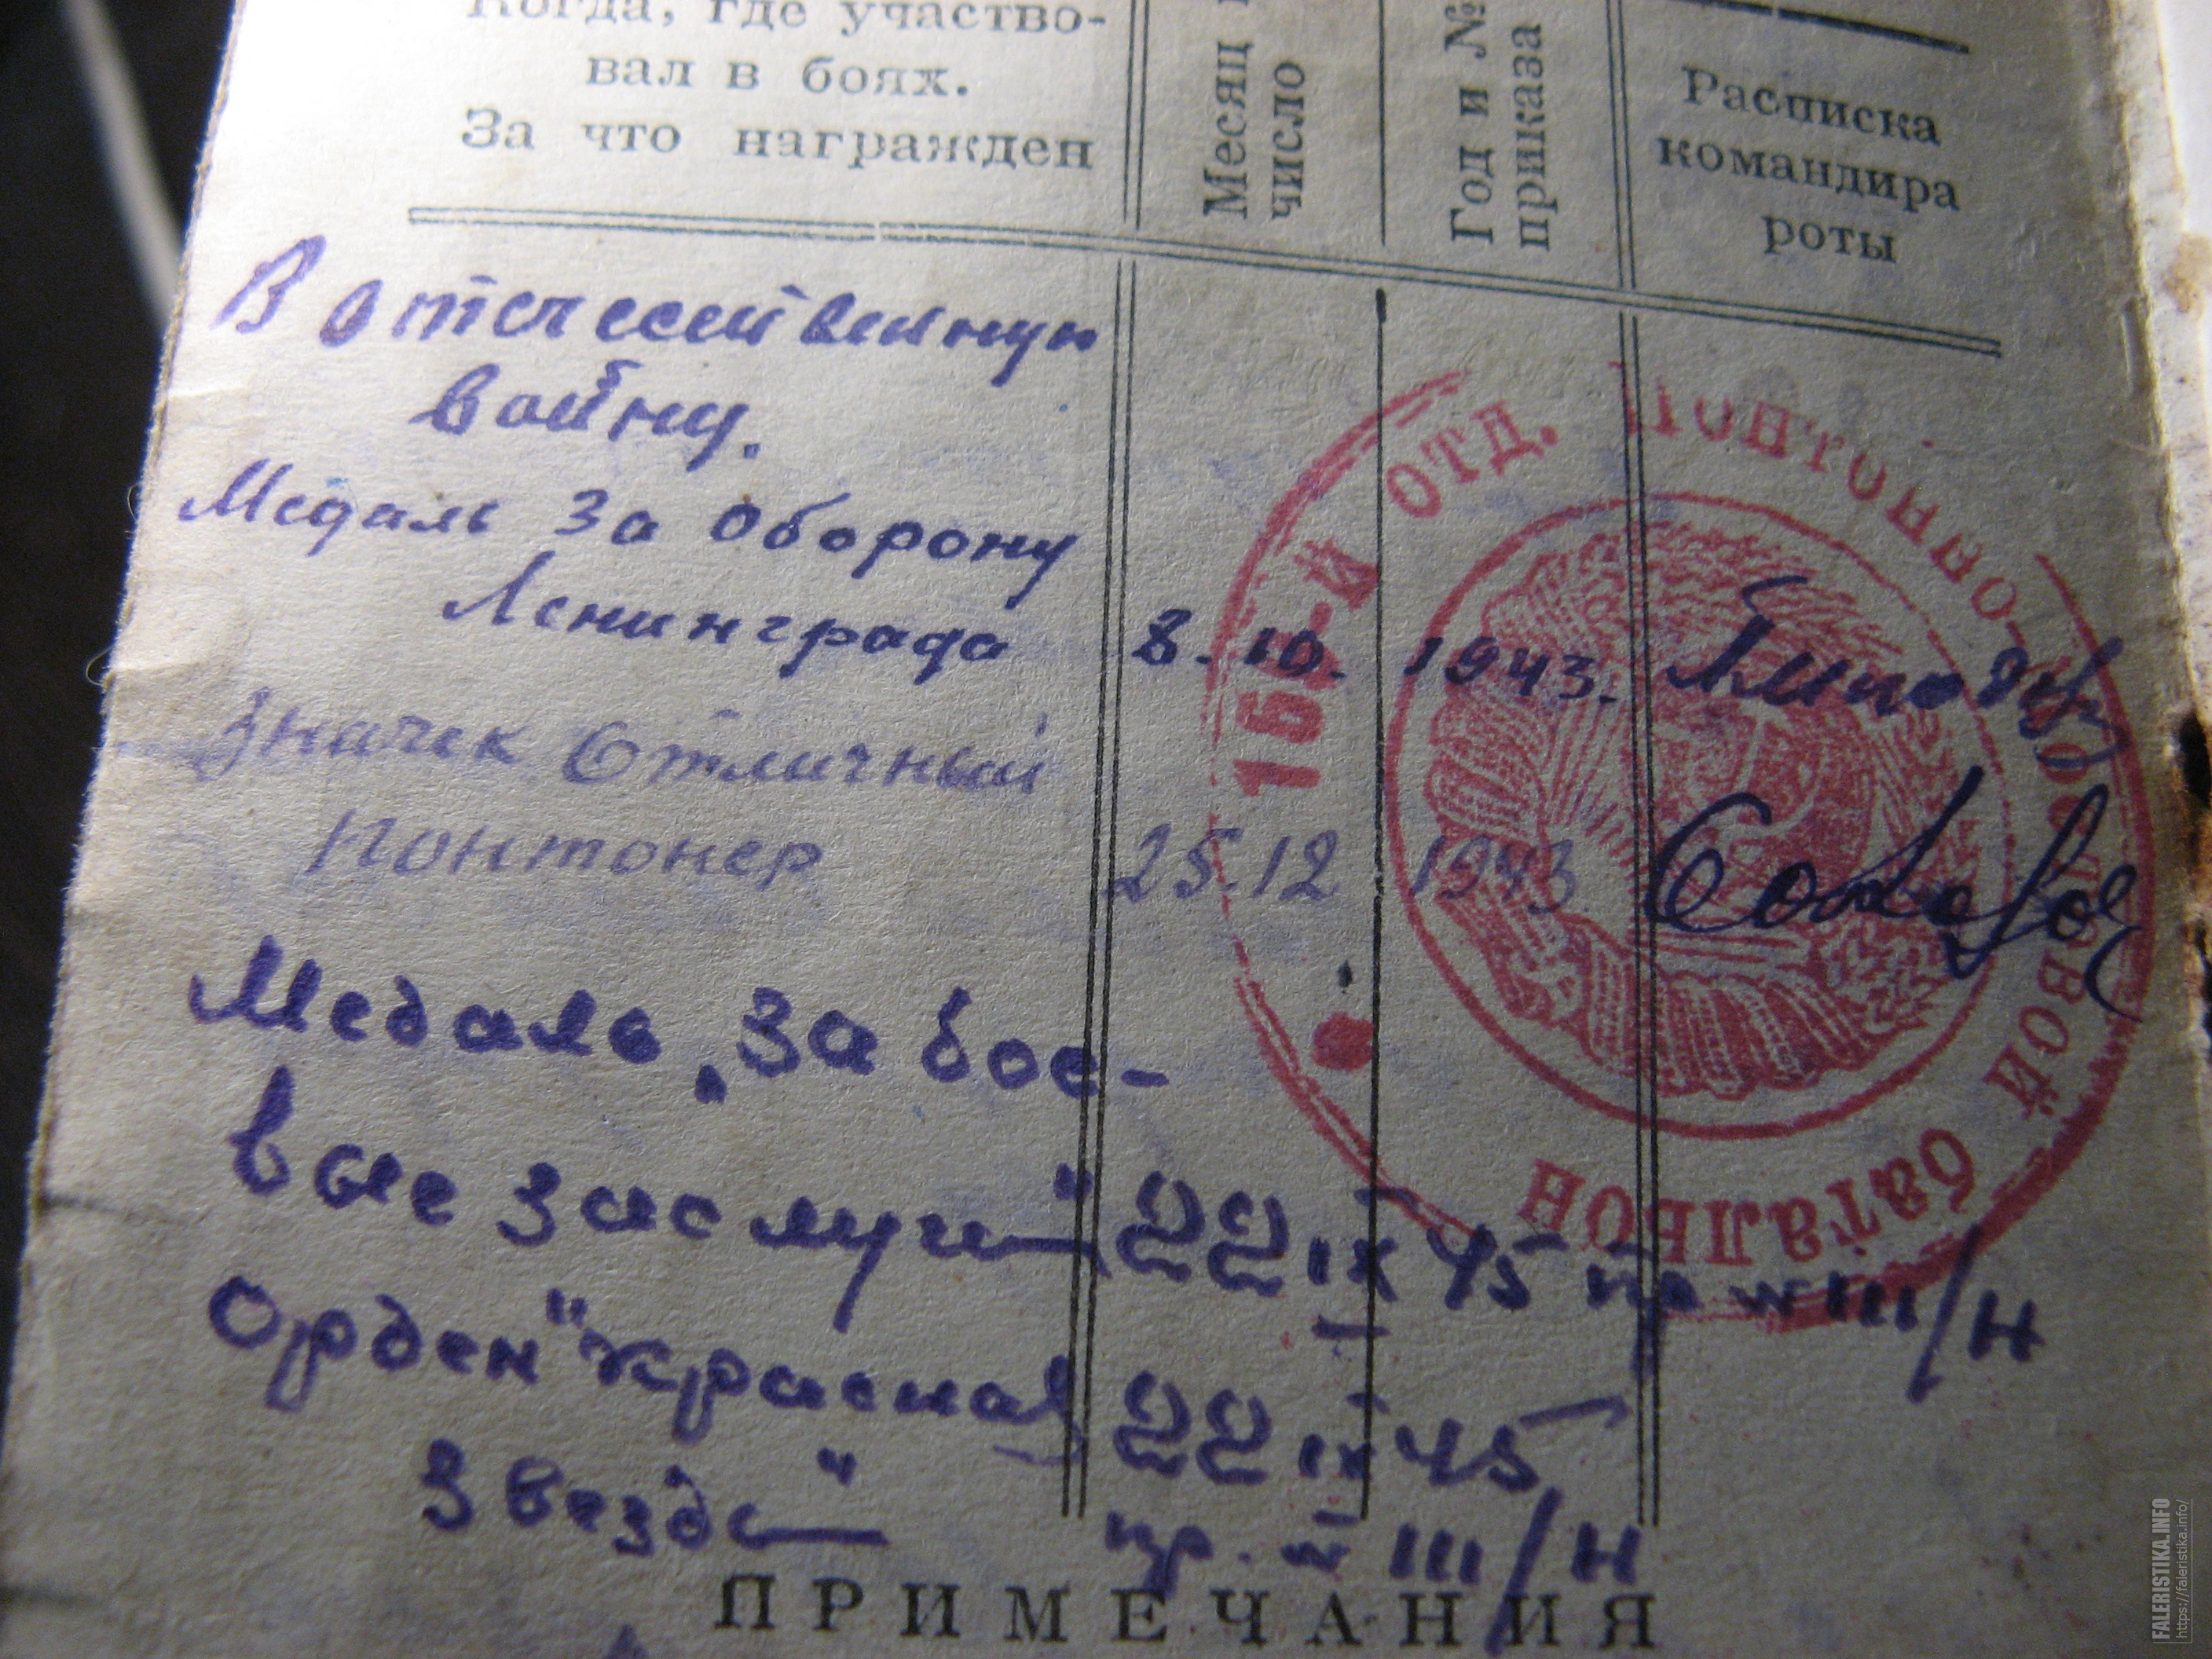 Когда, где участво-
вал в боях.
За что награжден
Месяц
число
Год и №
приказа
Расписка
командира
роты
В отечественную
войну.
Медаль за оборону
Ленинграда 8.10. 1943.
Значек Отличный
понтонер 25.12 1943
Медаль „За бое-
вые заслуги" 22 IX 45 пр № 111/н
Орден "Красная 22 IX 45
Звезда" пр. № 111/н
ПРИМЕЧАНИЯ
-й отд. Понтонно-
мостовой батальон
FALERISTIKA.INFO
https://faleristika.info/